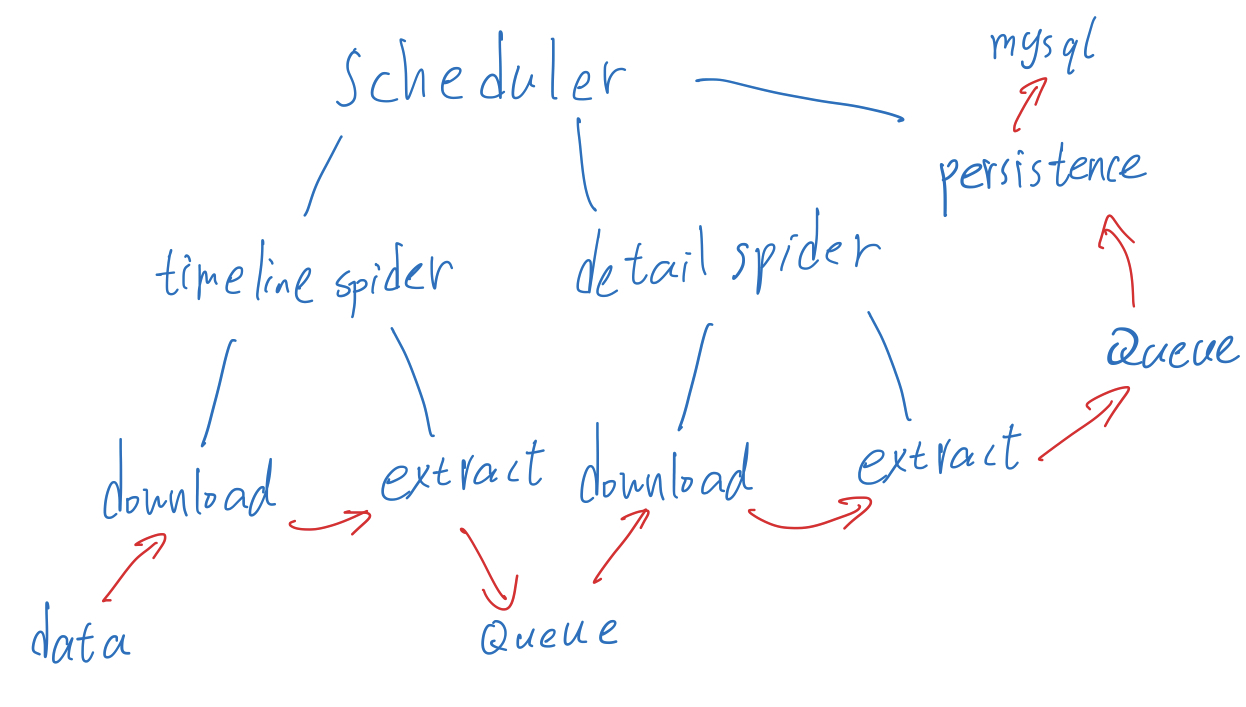 mysql
Scheduler
persistence
timeline spider
detail spider
Queue
download
extract
download
extract
data
Queue